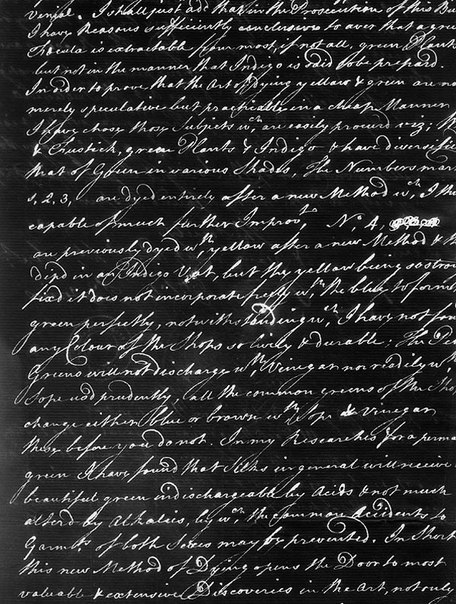 I shall just add that in the Prosecution of this Bu
I have Reasons sufficiently conclusive to aver that a gree
Fæcula is extractable from most, if not all, green Plant
but not in the manner that Indigo is said to be prepard.
In order to prove that the Art of Dying yellow & green are no
merely speculative but practicable in a cheap Manner
I have chose those Subjects wch. are easily procurd viz;
& Fustick, green Plants & Indigo & have diversified
that of Green in various Shades, The Numbers mar
1, 2, 3, are dyed entirely after a new Method wch. I th
capable of much further Improvt. No. 4,
are previously dyed wth. yellow after a new Method & th
dip'd in an Indigo Vat, but the yellow being so stron
fix'd it does not incorporate freely wth. the blue to form
green perfectly, notwithstanding wch. I have not fou
any Colour of the Shops so lively & durable; The
Greens will not discharge wth. Vinegar nor readily wth.
Sope used prudently, all the common greens of the Sho
change either blue or brown wth. Sope & Vinegar
these before you do not. In my Researches for a perma
green I have found that Silks in general will receive
beautiful green indischargeable by Acids & not much
alterd by Alkalis, by wch. the common Accidents to
Garmts. of both Sexes may be prevented. In Short
this new Method of Dying opens the Door to most
valuable & extensive Discoveries in the Art, not only